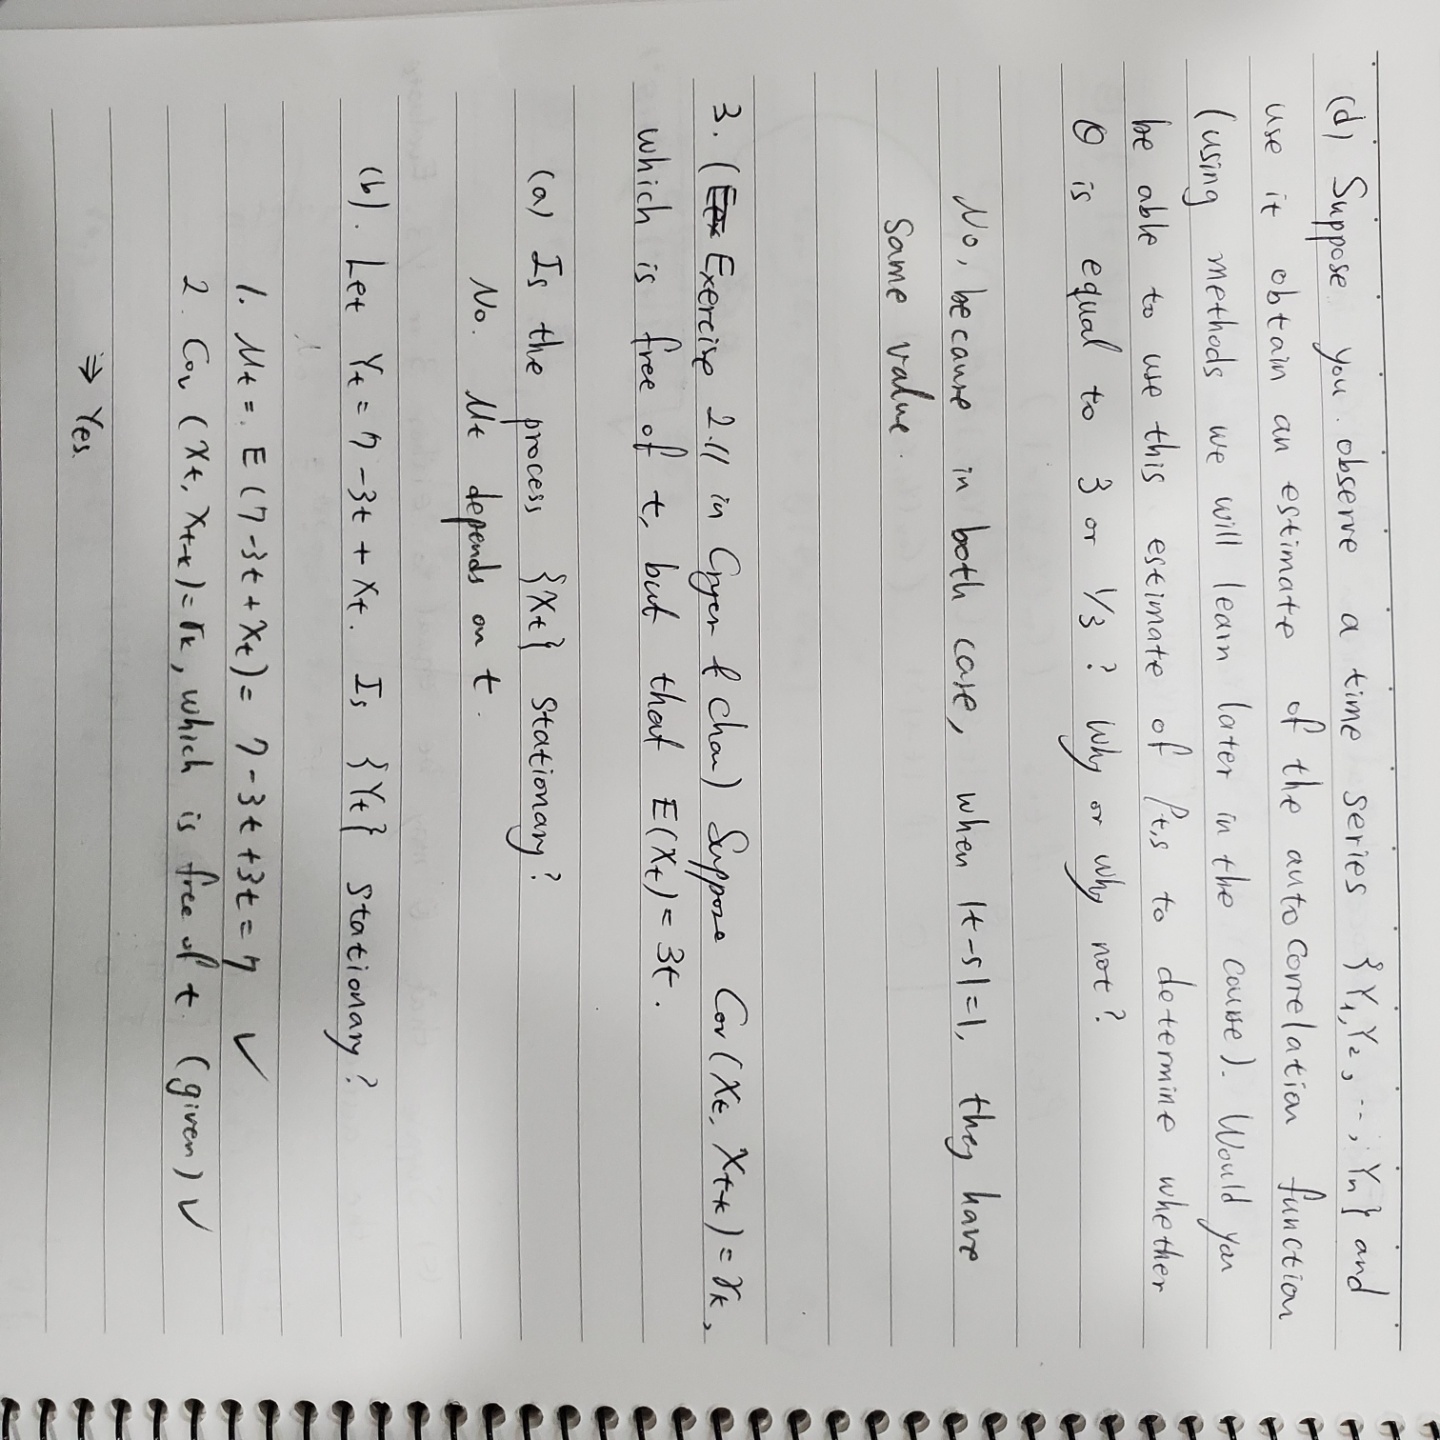 (d) Suppose you observe a time series {Y₁,Y₂, ..., Yn} and
use it obtain an estimate of the autocorrelation function
(using methods we will learn later in the course). Would you
be able to use this estimate of ρt,s to determine whether
θ is equal to 3 or 1/3 ? Why or why not?
No, because in both case, when |t-s|=1, they have
same value.
3. (Exercise 2.11 in Cryer & Chan) Suppose Cov (Xt, Xt-k) = γk,
which is free of t, but that E(Xt) = 3t.
(a) Is the process {Xt} stationary?
No. Mt depends on t.
(b). Let Yt = 7 -3t + Xt. Is {Yt} stationary?
1. Mt = E (7-3t+Xt) = 7-3t+3t = 7 ✓
2. Cov (Xt, Xt-k) = γk, which is free of t (given) ✓
⇒ Yes.